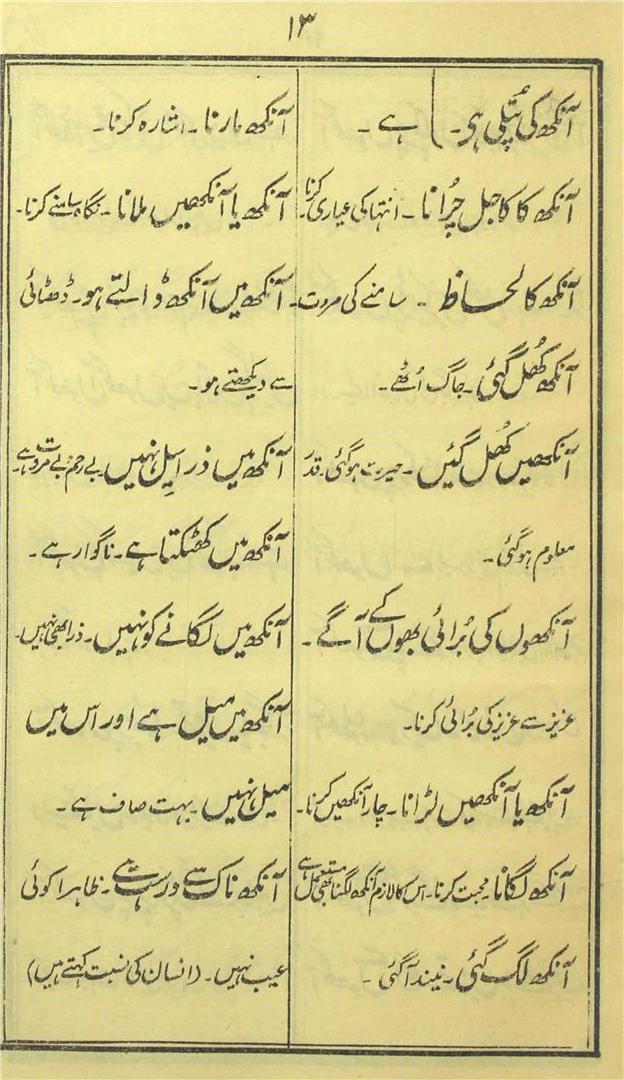 ۱۳
آنکھ کی پُتلی ہی۔ ہے ۔
آنکھ کا کاجل چرُانا ۔ انتہا کی عیاری کرنا۔
آنکھ کا لحاظ ۔ سامنے کی مروت۔
آنکھ کھُل گئی۔ جاگ اُٹھے۔
آنکھیں کھُل گئیں ۔ حیرت ہوگئی۔ قدر
معلوم ہوگئی۔
آنکھوں کی بُرائی بھوں کے آگے ۔
عزیز سے عزیز کی بُرائی کرنا۔
آنکھ یا آنکھیں لڑانا ۔ چار آنکھیں کرنا۔
آنکھ لگانا۔ محبت کرنا۔ اس کا لازم آنکھ لگنا بھی مستعمل ہے
آنکھ لگ گئی۔ نیند آگئی ۔
آنکھ مارنا ۔ اشارہ کرنا۔
آنکھ یا آنکھیں ملانا ۔ نگاہ سامنے کرنا۔
آنکھ میں آنکھ ڈالتے ہو۔ ڈھٹائی
سے دیکھتے ہو۔
آنکھ میں ذرا سِیل نہیں۔ بے رحم بے مروت ہے۔
آنکھ میں کھٹکتا ہے۔ ناگوار ہے۔
آنکھ میں لگانے کو نہیں۔ ذرا بھی نہیں۔
آنکھ میں میل ہے اور اس میں
میل نہیں۔ بہت صاف ہے۔
آنکھ ناک سے درست ہے۔ ظاہرا کوئی
عیب نہیں۔ (انسان کی نسبت کہتے ہیں)